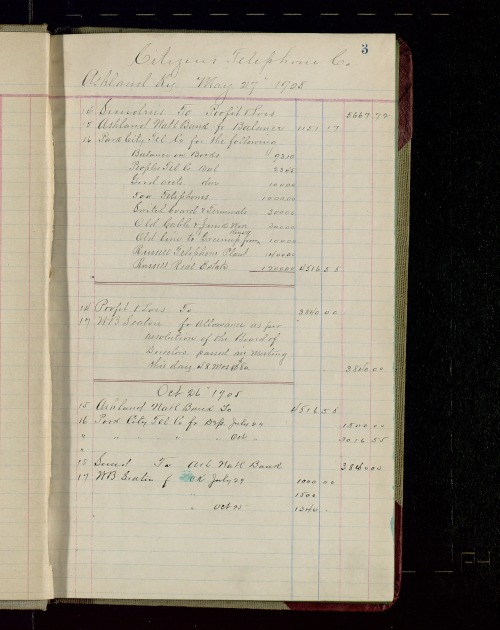 3
Citizens Telephone Co.
Ashland Ky May 27" 1905
16 Sundries To Profit & Loss 5667 72
15 Ashland Natl Bank fr Balance 1151 17
16 Park City Tel Co for the following
Balance on Books 9310
Peoples Tel Co Bal 2345
Good accts 10000
500 Telephones 100000
Switch board & Terminals 30000
Old Cable & Junk
Old line to Greenup 10000
Russell Telephone Plant
Russell Real Estate 120000 4516 55
16 Profit & Loss To 3860 00
17 WB Seaton fr allowance as per
resolution of the Board of
Directors passed in meeting
this day 3860 00
Oct 26" 1905
15 Ashland Natl Bank To 4516 55
16 Park City Tel Co fr Dep July 29 1500 00
" " " " " Oct " 3016 55
"
15 Sund To Ash Natl Bank 3840 00
17 WB Seaton f July 29 1000 00
" 1500
" Oct 25 1340 "